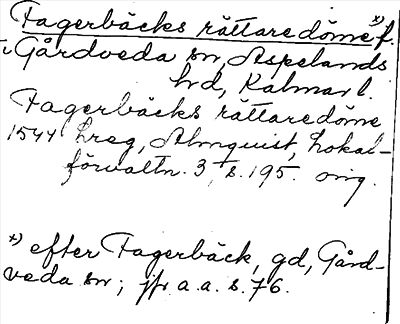 Fagerbäcks rättaredöme *) f.
i Gårdveda sn, Aspelands
hd, Kalmar l.
Fagerbäcks rättaredöme
1544 Lreg, Almquist, Lokal-
förvaltn. 3, s. 195. orig.
*) efter Fagerbäck, gd, Gård-
veda sn; jfr a.a. s. 76.